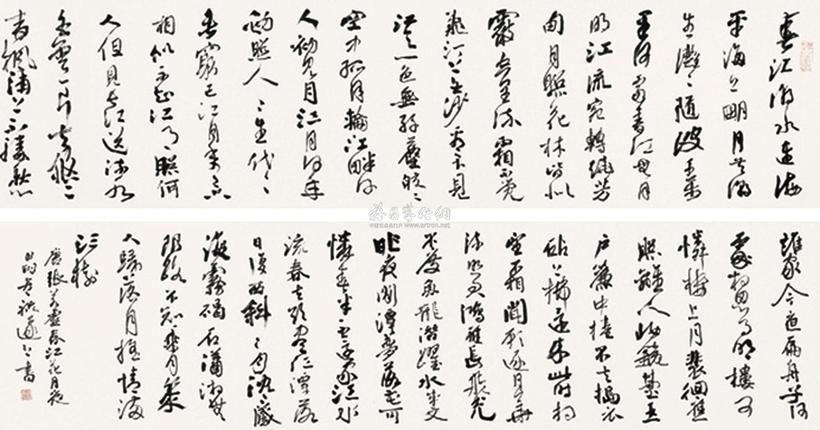 春江潮水連海
平海上明月共潮
生灔灔隨波千萬
里何處春江無月
明江流宛轉繞芳
甸月照花林皆似
霰空里流霜不覺
飛汀上白沙看不見
江天一色無纖塵皎皎
空中孤月輪江畔何
人初見月江月何年
初照人人生代代
無窮已江月年年
相似不知江月照何
人但見長江送流水
白雲一片去悠悠
青楓浦上不勝愁
誰家今夜扁舟子何
處相思明月樓可
憐樓上月裴徊應
照離人妝鏡臺玉
戶簾中捲不去搗衣
砧上拂還來此時相
望相聞願逐月華
流照君鴻雁長飛光
不度魚龍潛躍水成文
昨夜閑潭夢落花可
憐春半不還家江水
流春去欲盡江潭落
月復西斜斜月沉沉藏
海霧碣石瀟湘無
限路不知乘月幾
人歸落月搖情滿
江樹
唐張若虛春江花月夜
書
www.artron.net